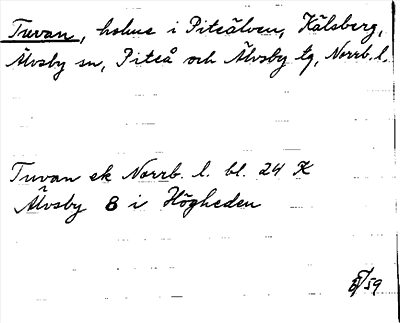 Tuvan, holme i Piteälven, Kälsberg,
Älvsby sn, Piteå och Älvsby tg, Norrb. l.
Tuvan ek Norrb. l. bl. 24 K
Älvsby 8 i Högheden
/59